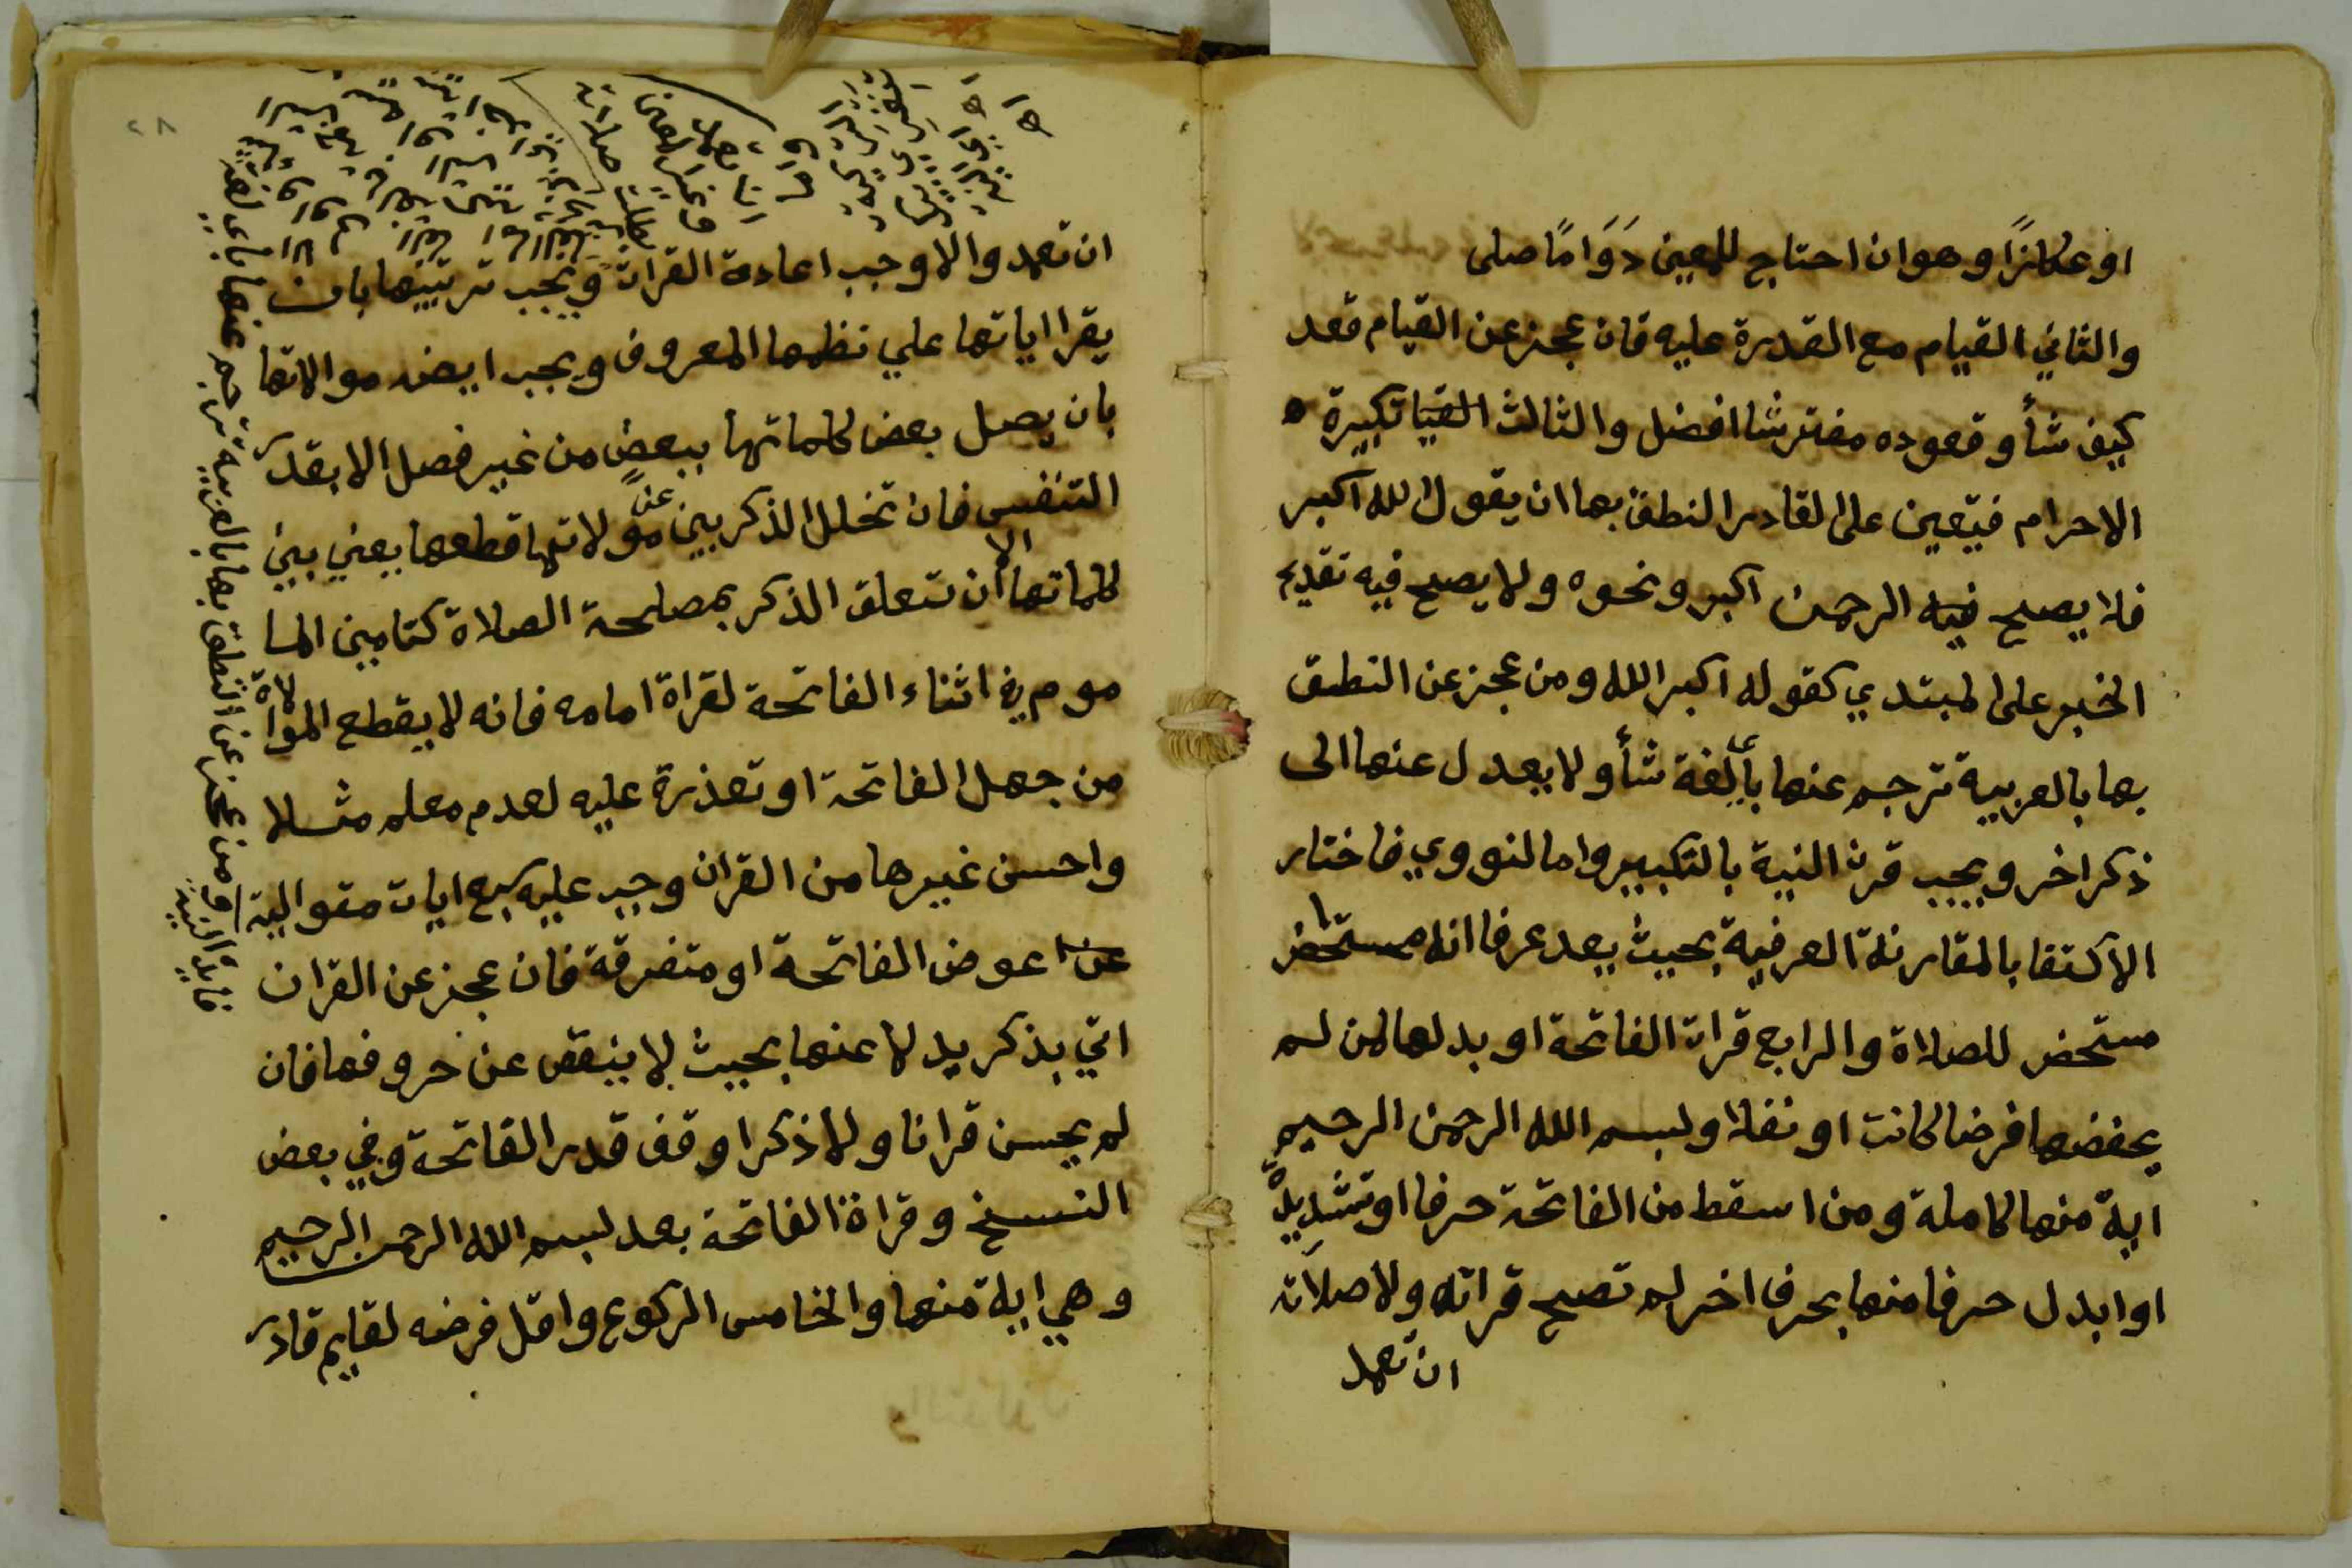 او عكازًا وهو ان احتاج للمعين دَوَامًا صلى
والثاني القيام مع القدرة عليه فان عجز عن القيام قعد
كيف شأ وقعوده مفترشا افضل والثالث تكبيرة
الاحرام فيتعين على القادر النطق بها ان يقول الله اكبر
فلا يصح فيه الرحمن اكبر ونحوه ولا يصح فيه تقديم
الخبر على المبتدي كقوله اكبر الله ومن عجز عن النطق
بها بالعربية ترجم عنها بأي لغة شأ ولا يعدل عنها الى
ذكر اخر ويجب قرن النية بالتكبير واما لنووي فاختار
الاكتفا بالمقارنة العرفية بحيث يعد عرفا انه مستحضر
مستحضر للصلاة والرابع قراة الفاتحة او بدلها لمن لم
يحفضها فرضا كانت او نفلا وبسم الله الرحمن الرحيم
اية منها كاملة ومن اسقط من الفاتحة حرفا او تشديدة
او ابدل حرفا منها بحرف اخر لم تصح قراته ولا صلاته
ان تعمد
ان تعمد والا وجب اعادة القراة ويجب ترتيبها بان
يقرا اياتها علي نظمها المعروف ويجب ايضه موالاتها
بان يصل بعض كلماتها ببعض من غير فصل الا بقدر
التنفس فان تخلل الذكر بين موّلاتها قطعها يعني بين
كلماتها الا ان تتعلق الذكر بمصلحة الصلاة كتامين الما
موم في اثناء الفاتحة لقراة امامه فانه لا يقطع الموالاة
من جهل الفاتحة او تعذرة عليه لعدم معلم مثلا
واحسن غيرها من القران وجب عليه سبع ايات متوالية
عوض الفاتحة او متفرقة فان عجز عن القران
اتي بذكر بدلا عنها بحيث لا ينقص عن حروفها فان
لم يحسن قرانا ولا ذكرا وقف قدر الفاتحة وفي بعض
النسخ وقراة الفاتحة بعد بسم الله الرحمن الرحيم
وهي اية منها والخامس الركوع واقل فرضه لقايم قادر
ومن عجز عن النطق بها بالعربية ترجم عنها باي لغة